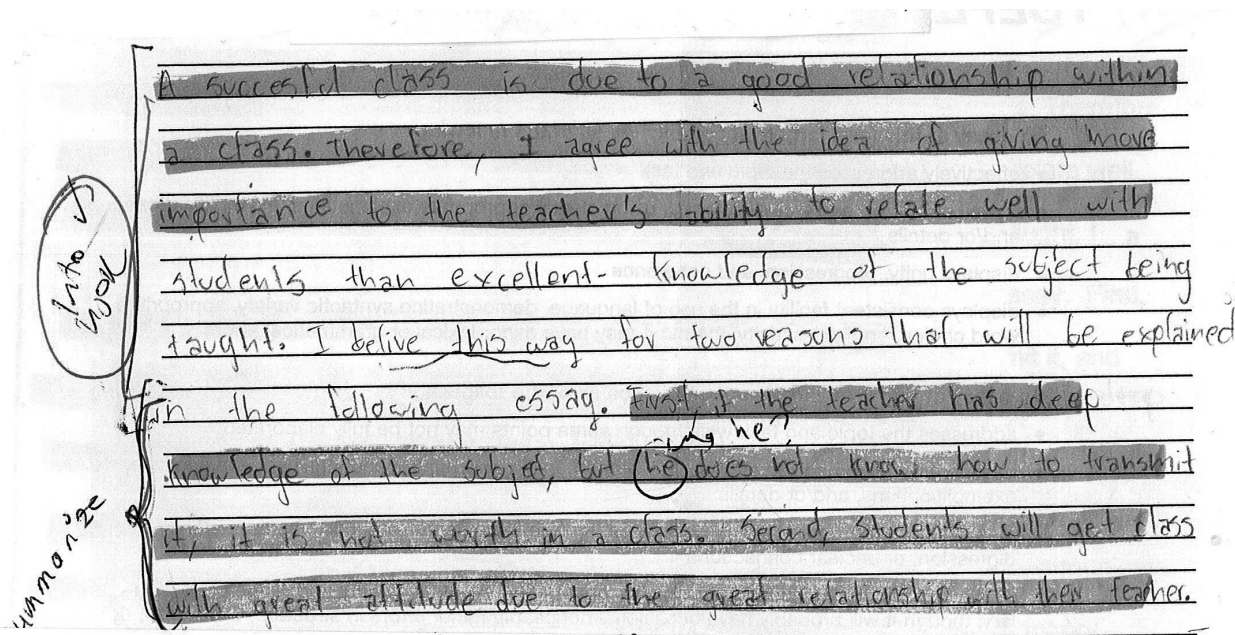 A succesful class is due to a good relationship within
a class. Therefore, I agree with the idea of giving more
importance to the teacher's ability to relate well with
students than excellent knowledge of the subject being
taught. I belive this way for two reasons that will be explained
in the following essay. First, if the teacher has deep
why he?
knowledge of the subject, but he does not know how to transmit
it, it is not worth in a class. Second, students will get class
with great attitude due to the great relationship with their teacher.
Intro
hook